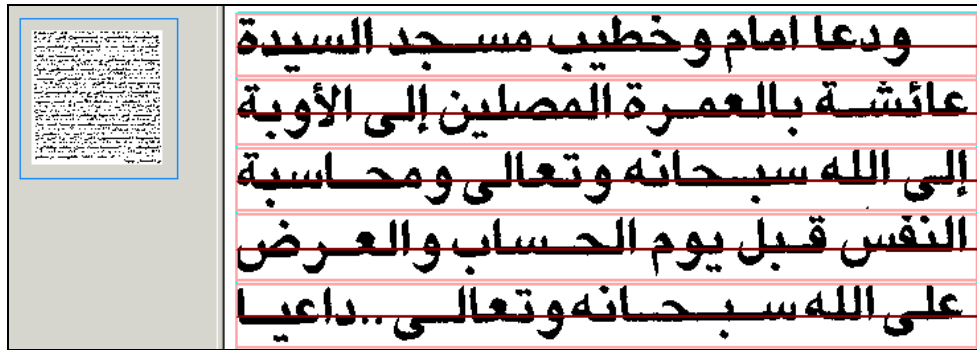 ودعا امام وخطيب مسجد السيدة
عائشة بالعمرة المصلين إلى الأوبة
إلى الله سبحانه وتعالى ومحاسبة
النفس قبل يوم الحساب والعرض
على الله سبحانه وتعالى..داعيا